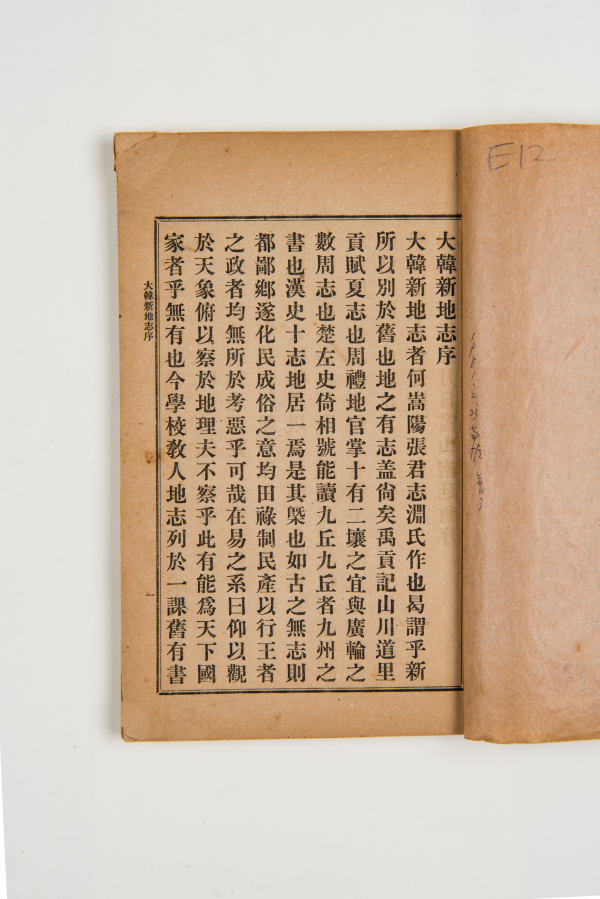 E12
大韓新地志序
大韓新地志者何嵩陽張君志淵氏作也曷謂乎新
所以別於舊也地之有志盖尙矣禹貢記山川道里
貢賦夏志也周禮地官掌十有二壤之宜與廣輪之
數周志也楚左史倚相號能讀九丘九丘者九州之
書也漢史十志地居一焉是其槩也如古之無志則
都鄙鄉遂化民成俗之意均田祿制民產以行王者
之政者均無所於考惡乎可哉在易之系曰仰以觀
於天象俯以察於地理夫不察乎此有能爲天下國
家者乎無有也今學校敎人地志列於一課舊有書
大韓新地志序
一